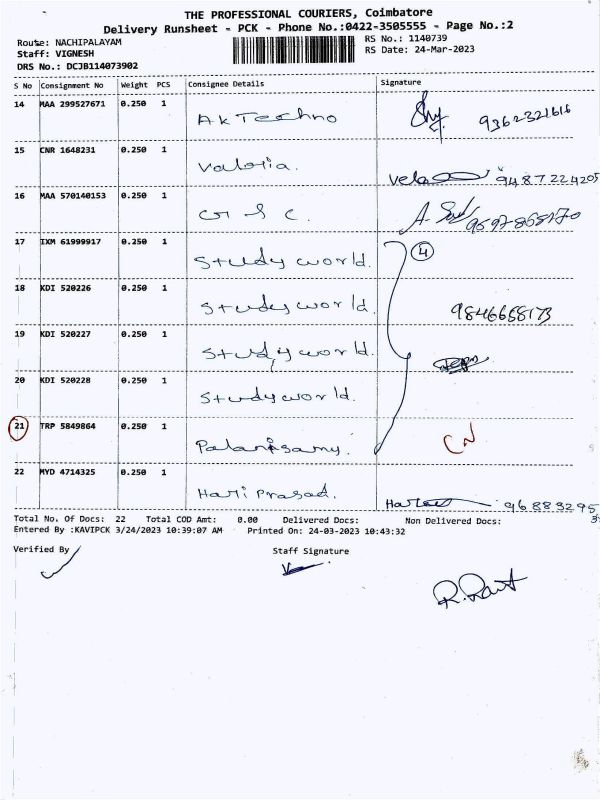 THE PROFESSIONAL COURIERS, Coimbatore
Delivery Runsheet - PCK - Phone No.:0422-3505555 - Page No.:2
Route: NACHIPALAYAM
RS No.: 1140739
Staff: VIGNESH
RS Date: 24-Mar-2023
DRS No.: DCJB114073902
S No Consignment No Weight PCS Consignee Details Signature
14 MAA 299527671 0.250 1 AK Techno 9362321616
15 CNR 1648231 0.250 1 Valoria. 9487224205
16 MAA 570140153 0.250 1 G S C.
17 IXM 61999917 0.250 1 Study world. 4
18 KDI 520226 0.250 1 Study world. 9846658173
19 KDI 520227 0.250 1 Study world.
20 KDI 520228 0.250 1 Study world.
21 TRP 5849864 0.250 1 Palanisamy. CN
22 MYD 4714325 0.250 1 Hari Prasad.
Total No. Of Docs: 22 Total COD Amt: 0.00 Delivered Docs: Non Delivered Docs:
Entered By :KAVIPCK 3/24/2023 10:39:07 AM Printed On: 24-03-2023 10:43:32
Verified By Staff Signature